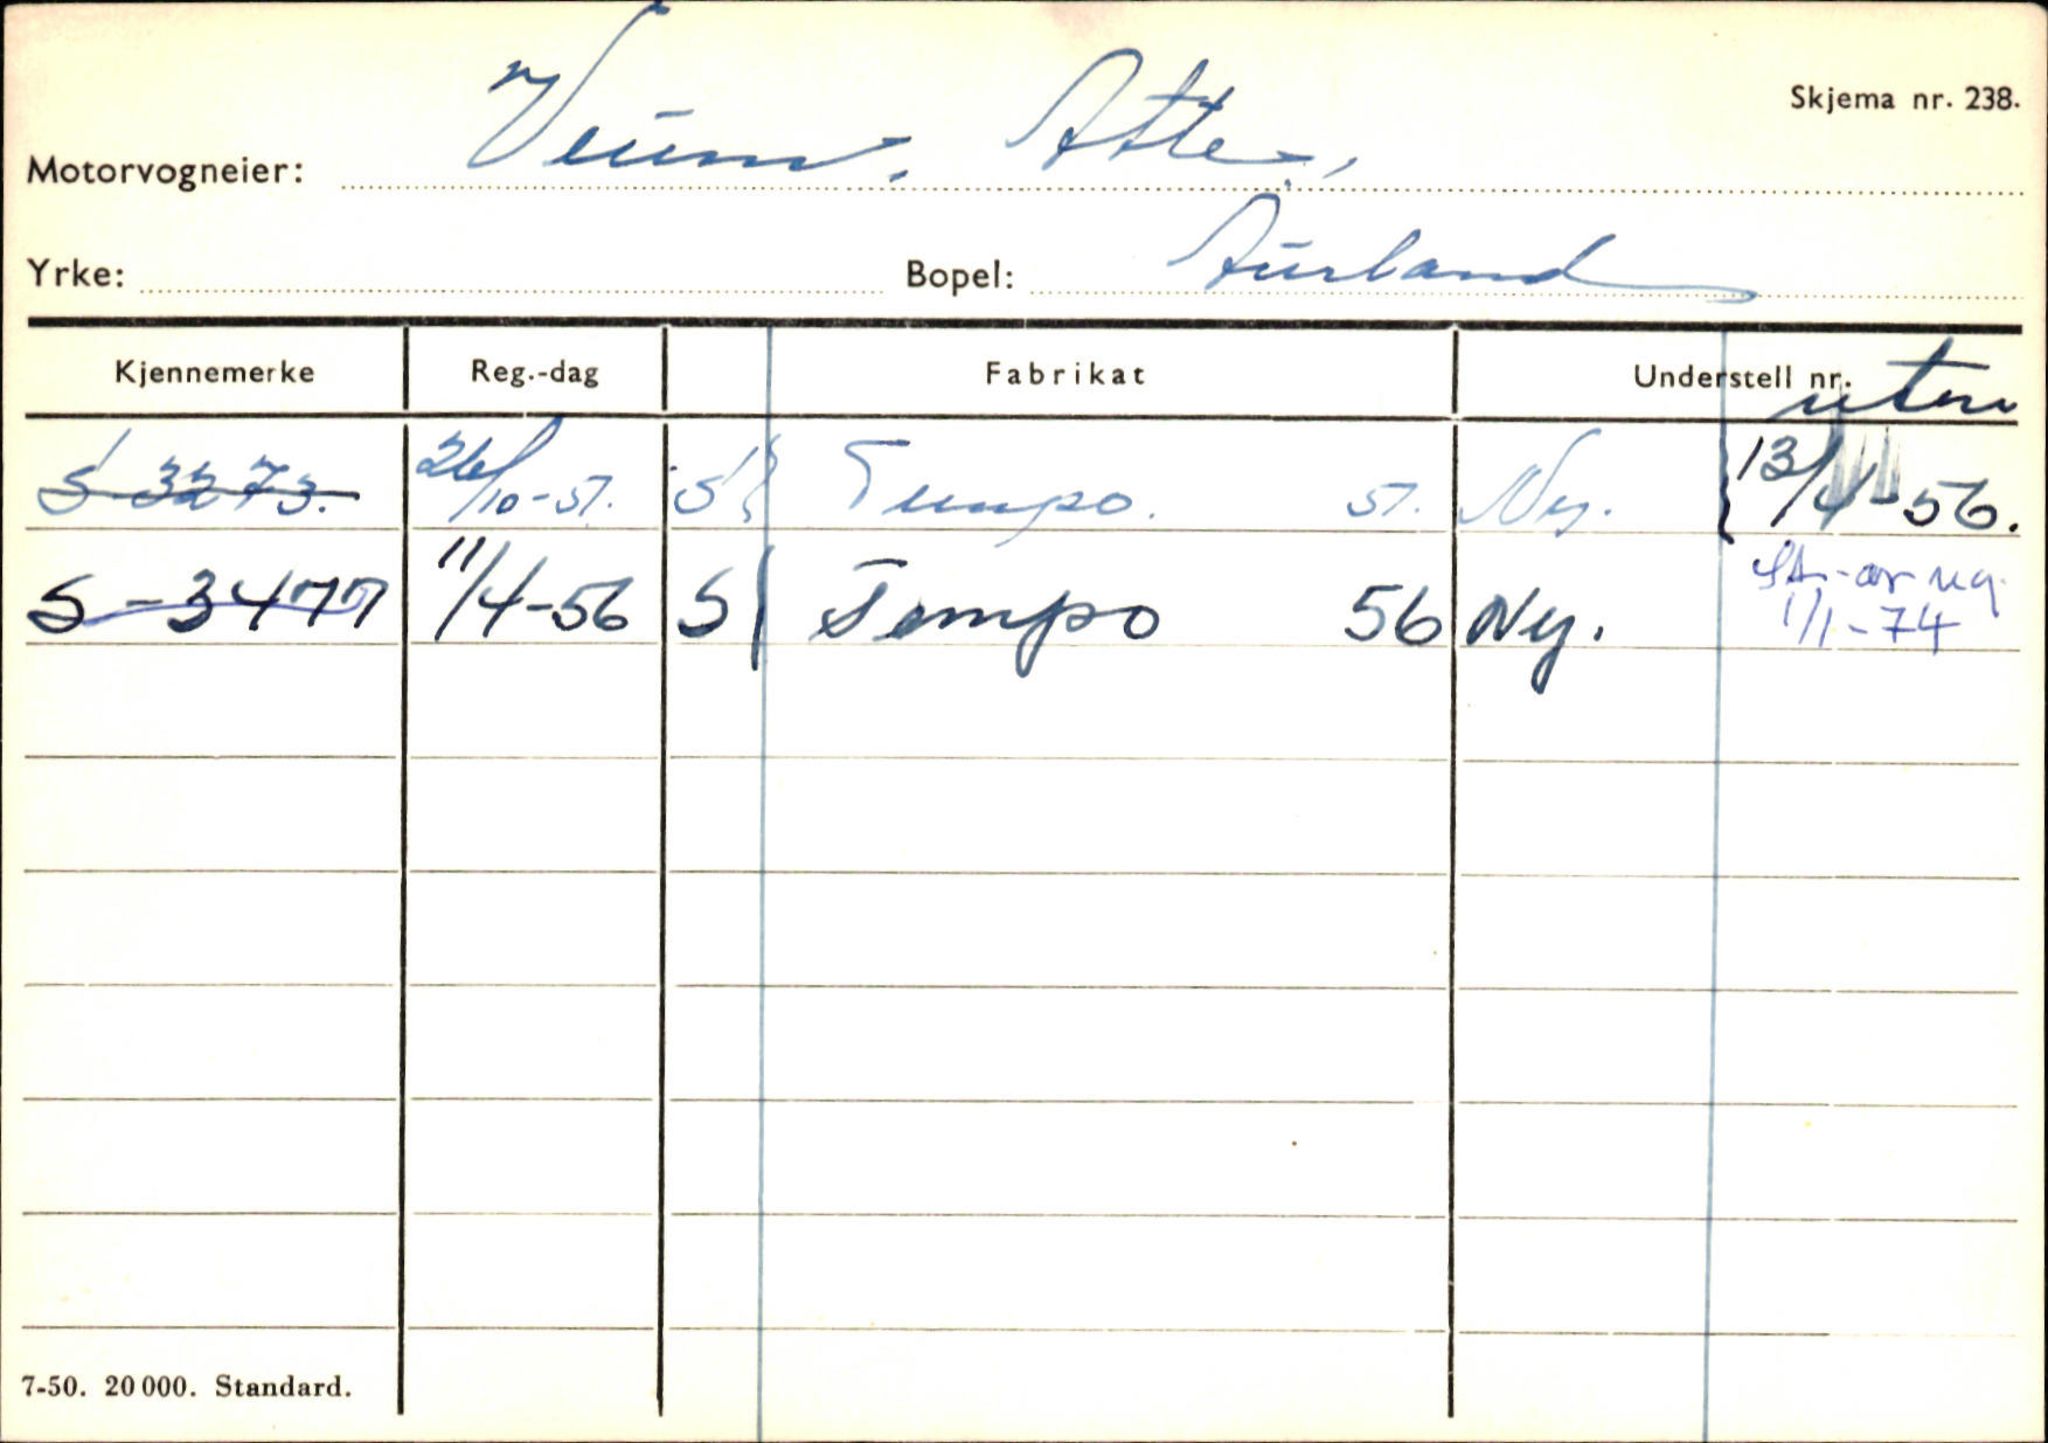 Skjema nr. 238.
Motorvogneier: Veum, Atle,
Yrke: Bopel: Aurland
Kjennemerke Reg.-dag Fabrikat Understell nr. uten
S-3273. 26/10-51. S Tempo. 51. Ny. 13/4-56.
S-3477 11/4-56 S Tempo 56 Ny. 1/1-74
7-50. 20 000. Standard.